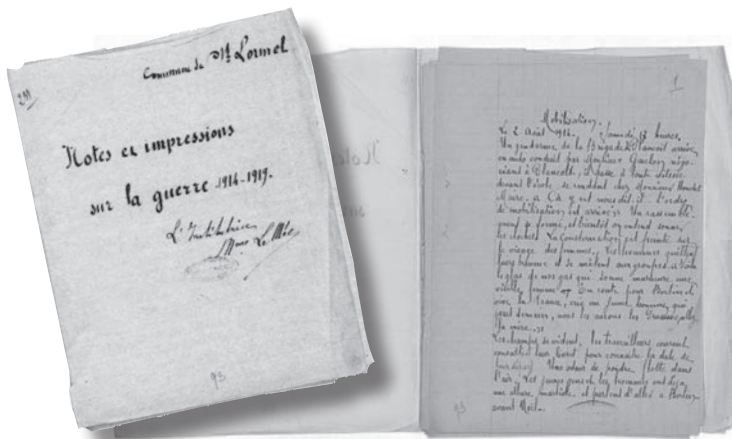 Commune de St Lormel
Notes et impressions
sur la guerre 1914-1919.
L'Institutrice
Mme Le Mée
93
1
Mobilisation.
Le 2 Août 1914. Samedi 17 heures.
Un gendarme de la Brigade de Plancoët arrive
en auto conduit par Monsieur négo-
ciant à Plancoët, il passe à toute vitesse
devant l'école se rendant chez Monsieur
Maire. « Ça y est nous dit-il l'ordre
de mobilisation est arrivé ». Un rassemble-
ment se forme, et bientôt on entend sonner
les cloches. La consternation est peinte sur
le visage des femmes. Les hommes quittent
leurs travaux et se mêlent aux groupes. « Voilà
le glas de nos gas qui sonne murmure une
vieille femme » « En route pour Berlin et
vive la France, crie un jeune homme, qui
peut demeurer, nous les aurons les
la mère. »
Les champs se vident, les travailleurs courent
consulter leur livret pour connaître la date de
leur départ. Une odeur de poudre flotte dans
l'air. Les jeunes gens et les hommes ont déjà
une allure martiale et parlent d'aller à Berlin
avant Noël.
93